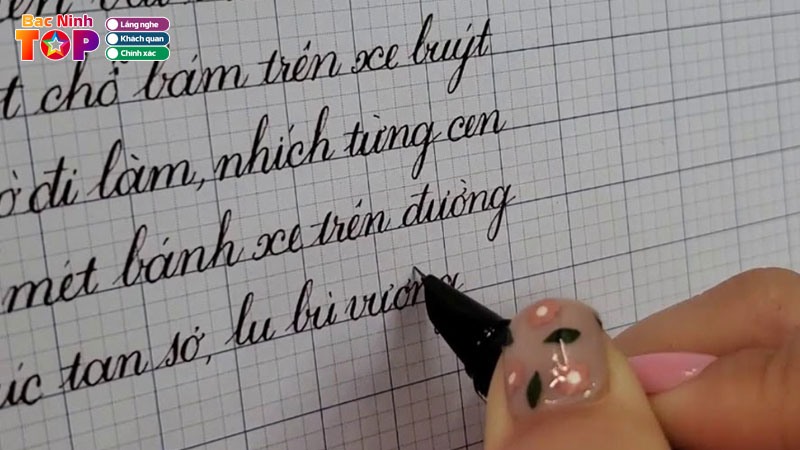 Bac Ninh
TOP
Lắng nghe
Khách quan
Chính xác
t chỗ bám trên xe buýt
đi làm, nhích từng cen
mét bánh xe trên đường
úc tan sở, lu bù